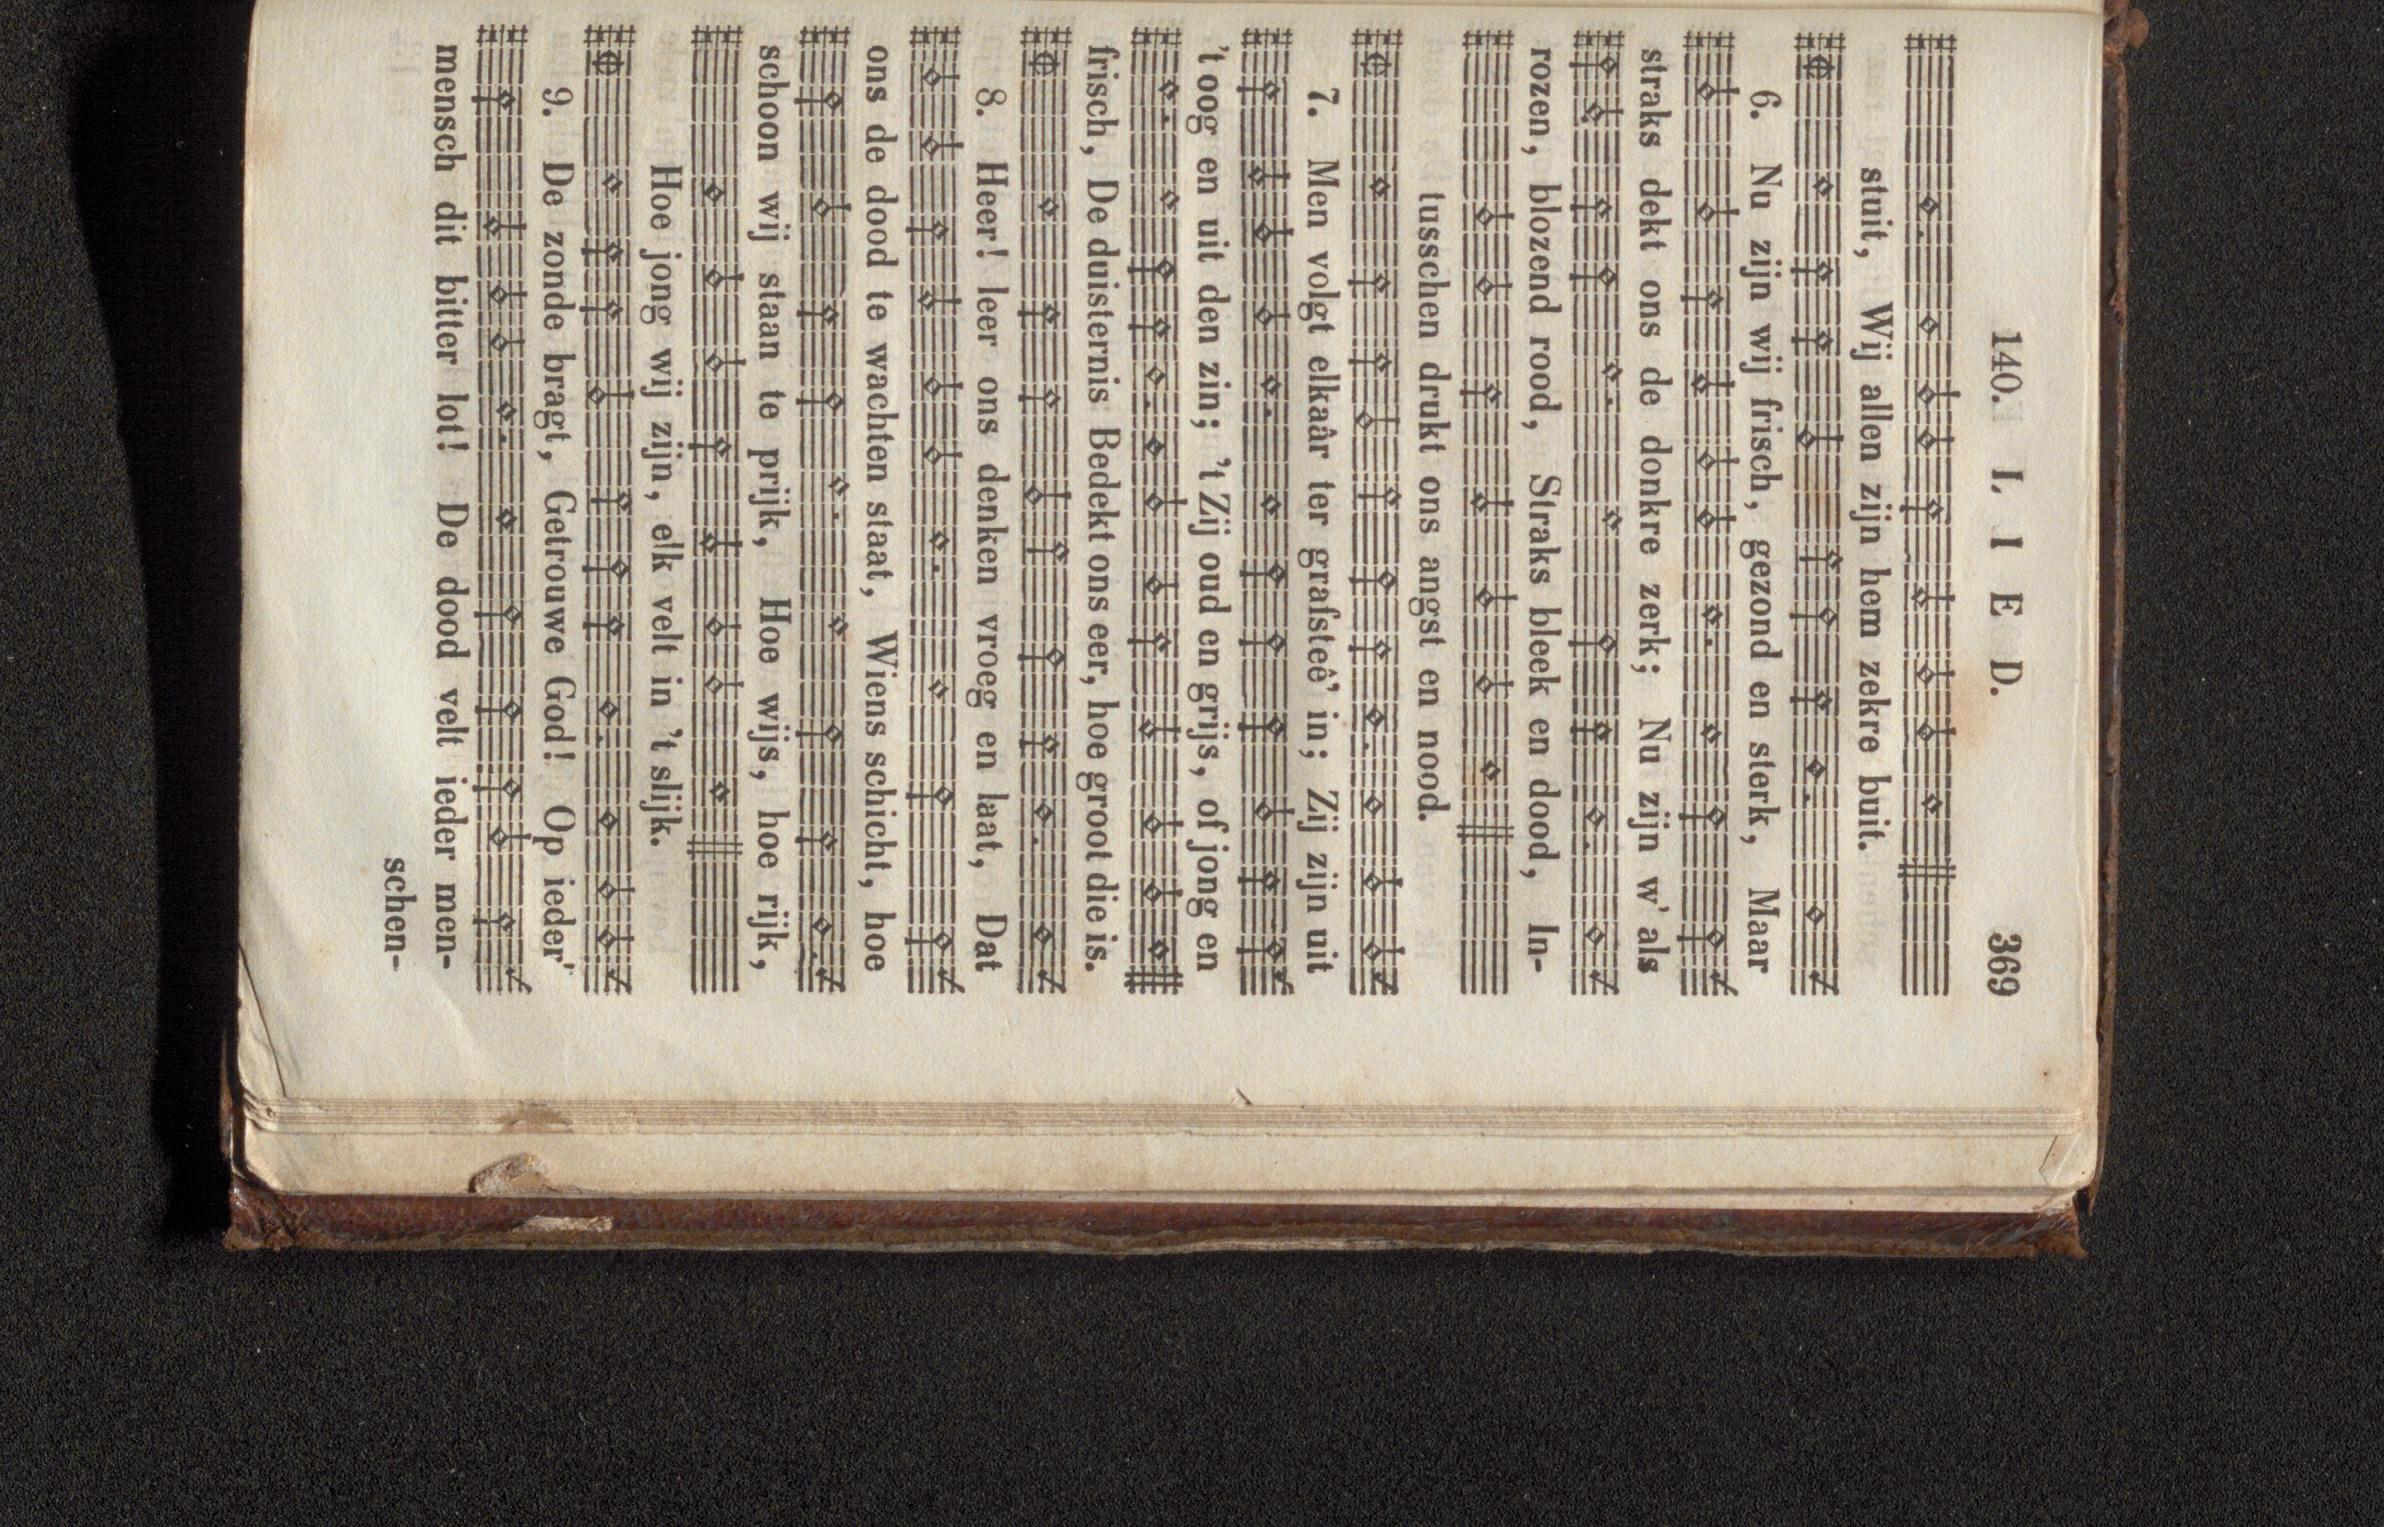 140. L I E D. 369
stuit, Wij allen zijn hem zekre buit.
6. Nu zijn wij frisch, gezond en sterk, Maar
straks dekt ons de donkre zerk; Nu zijn w' als
rozen, blozend rood, Straks bleek en dood, In-
tusschen drukt ons angst en nood.
7. Men volgt elkaâr ter grafsteê' in; Zij zijn uit
't oog en uit den zin; 't Zij oud en grijs, of jong en
frisch, De duisternis Bedekt ons eer, hoe groot die is.
8. Heer! leer ons denken vroeg en laat, Dat
ons de dood te wachten staat, Wiens schicht, hoe
schoon wij staan te prijk, Hoe wijs, hoe rijk,
Hoe jong wij zijn, elk velt in 't slijk.
9. De zonde bragt, Getrouwe God! Op ieder'
mensch dit bitter lot! De dood velt ieder men-
schen-